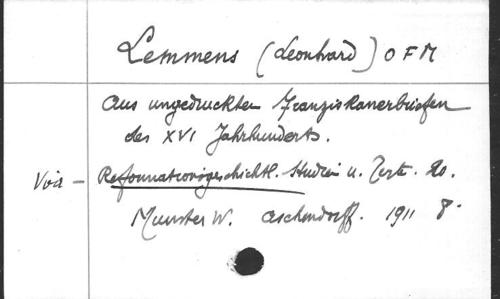 Lemmens (Leonhard) OFM
Aus ungedruckten Franziskanerbriefen
des XVI Jahrhunderts.
Voir – Reformationsgeschichtl. Studien u. Texte. 20.
Munster W. Aschendorff. 1911 8°